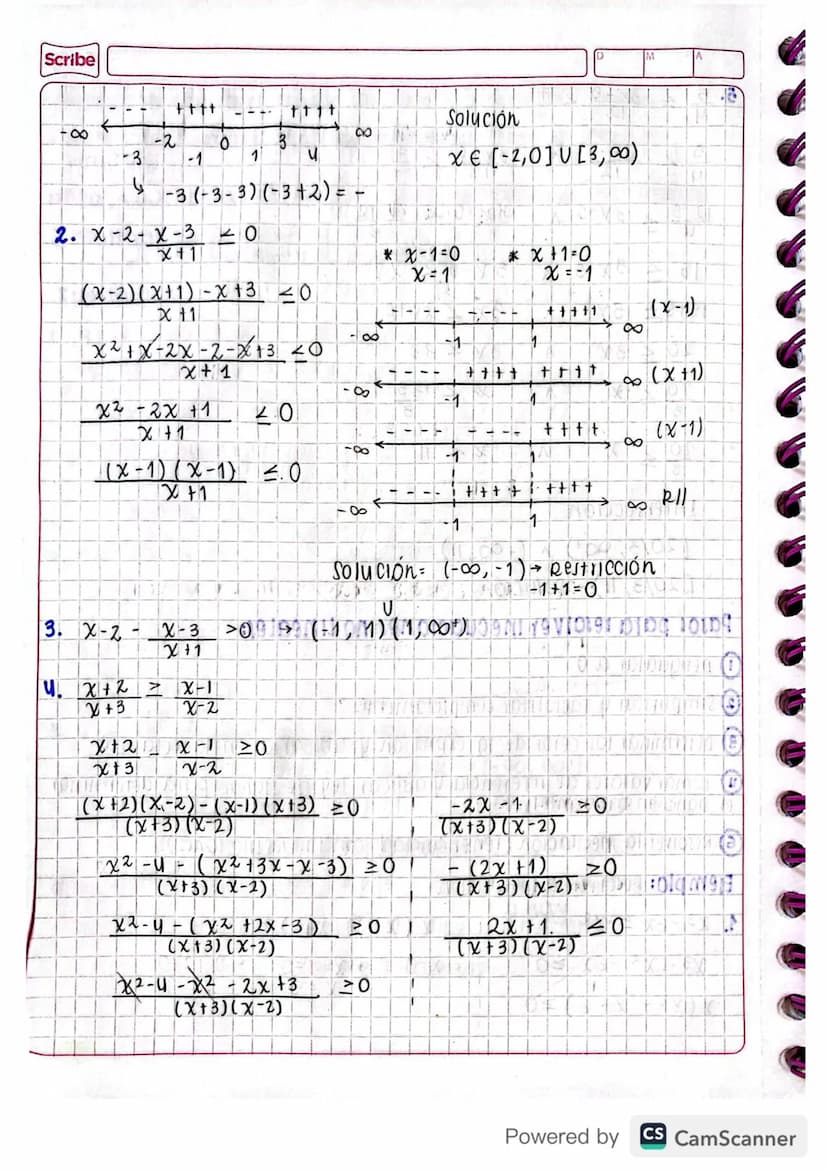 Scribe
D M A
- - - + + + + - - - - + + + +
-∞ -2 0 3 ∞
-3 -1 1 4
↳ -3(-3-3)(-3+2) = -
Solución
x ∈ [-2,0] U [3,∞)
2. x-2- \frac{x-3}{x+1} ≤ 0
\frac{(x-2)(x+1)-x+3}{x+1} ≤ 0
\frac{x²+x-2x-2-x+3}{x+1} ≤ 0
\frac{x²-2x+1}{x+1} ≤ 0
\frac{(x-1)(x-1)}{x+1} ≤ 0
* x-1=0 * x+1=0
x=1 x=-1
- - - - - - - - + + + + + (x-1)
-∞ -1 1 ∞
- - - - + + + + + + + + ∞ (x+1)
-∞ -1 1
- - - - - - - - + + + + (x-1)
-∞ -1 1 ∞
- - - - + + + + + + + + R//
-∞ -1 1 ∞
Solución= (-∞, -1) → Restricción
-1+1=0
3. x-2 - \frac{x-3}{x+1} >0 → (-1, 1) U (1, ∞+)
4. \frac{x+2}{x+3} ≥ \frac{x-1}{x-2}
\frac{x+2}{x+3} - \frac{x-1}{x-2} ≥0
\frac{(x+2)(x-2)-(x-1)(x+3)}{(x+3)(x-2)} ≥0
\frac{x²-4-(x²+3x-x-3)}{(x+3)(x-2)} ≥0
\frac{x²-4-(x²+2x-3)}{(x+3)(x-2)} ≥0
\frac{x²-4-x²-2x+3}{(x+3)(x-2)} ≥0
\frac{-2x-1}{(x+3)(x-2)} ≥0
\frac{-(2x+1)}{(x+3)(x-2)} ≥0
\frac{2x+1}{(x+3)(x-2)} ≤0
Powered by CS CamScanner